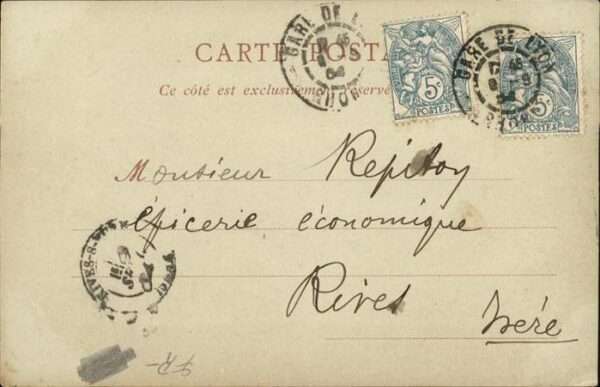 CARTE POSTA
Ce côté est exclusivement réservé
GARE DE L
RHÔNE
5c
POSTES
GARE DE LYON
5c
POSTES
Monsieur Repitoy
épicerie économique
Rives Isère
RIVES-S-